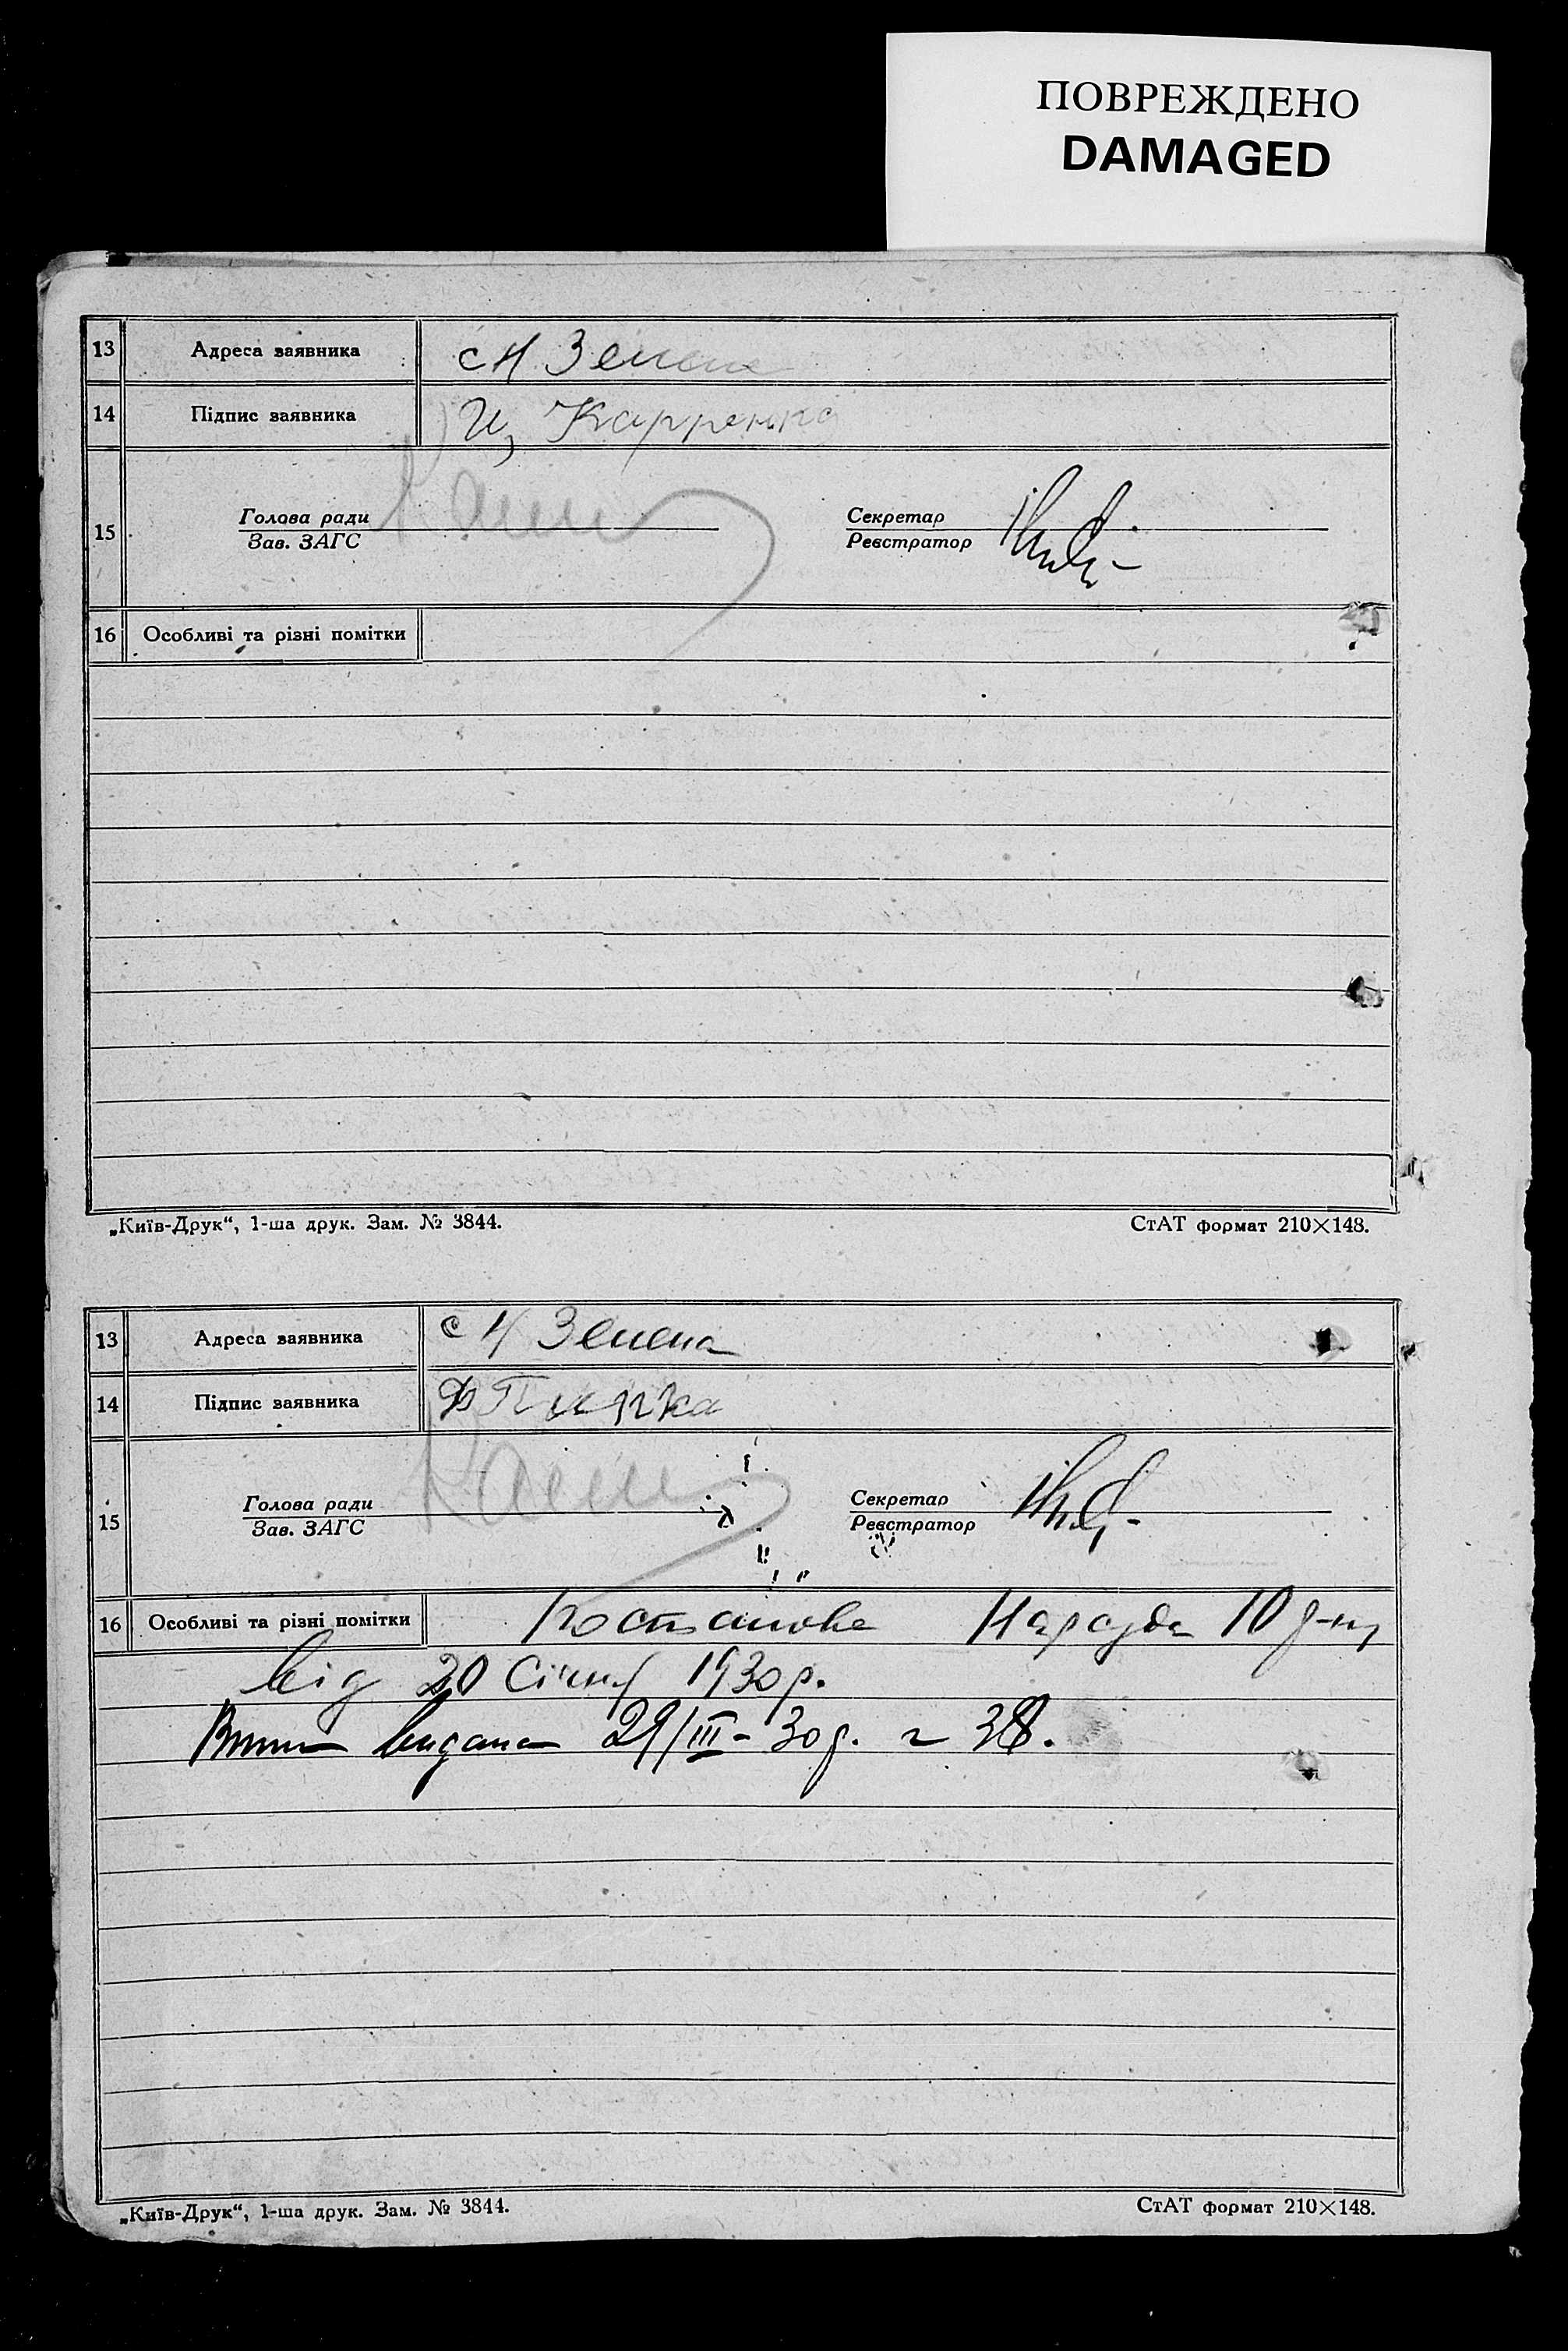 ПОВРЕЖДЕНО
DAMAGED
13 Адреса заявника с Н Зелена
14 Підпис заявника
15 Голова ради Секретар
Зав. ЗАГС Реєстратор
16 Особливі та різні помітки
„Київ-Друк“, 1-ша друк. Зам. № 3844. СтАТ формат 210×148.
13 Адреса заявника с Н Зелена
14 Підпис заявника
15 Голова ради Секретар
Зав. ЗАГС Реєстратор
16 Особливі та різні помітки Нарсуда 10 д-ку
від 20 Січня 1930 р.
видана 29/III-30 р. 38.
„Київ-Друк“, 1-ша друк. Зам. № 3844. СтАТ формат 210×148.